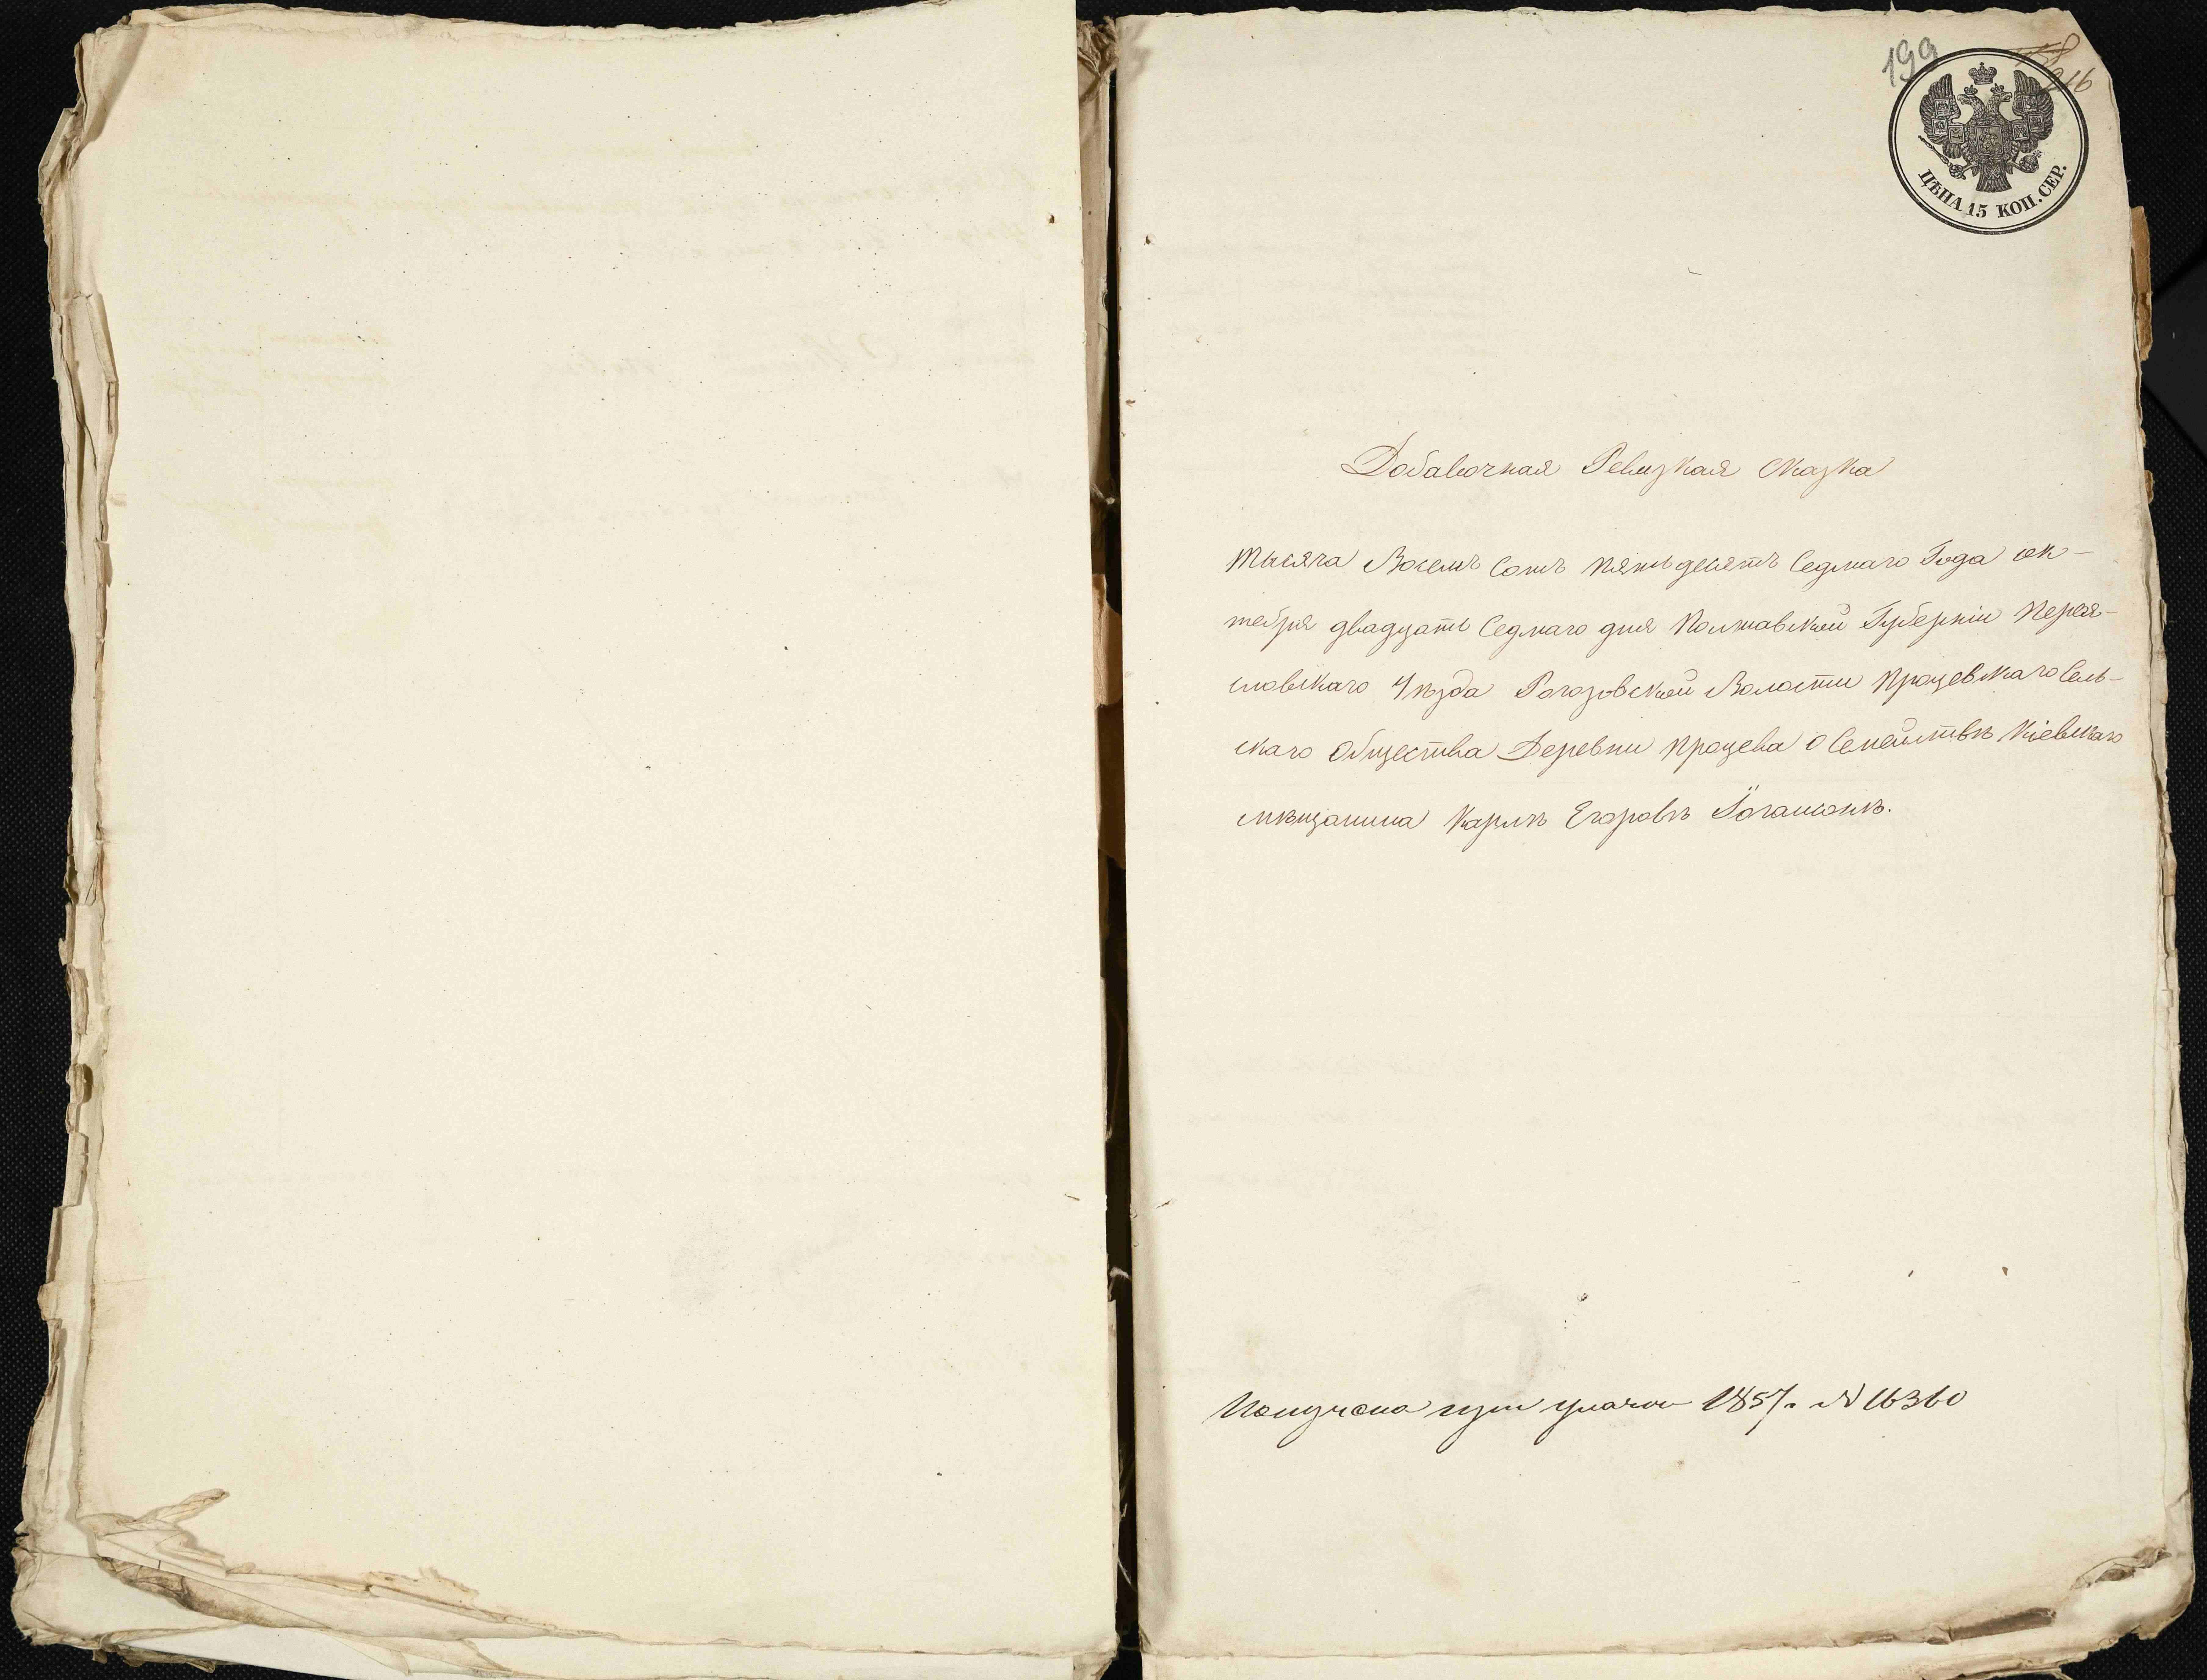 199
216
ЦѢНА 15 КОП. СЕР.
Добавочная Ревизкая Сказка
Тысяча Восемъ Сотъ Пятьдесятъ Седмаго Года ок-
тебря двадцать Седмаго дня Полтавской Губерніи Перея-
словскаго Уѣзда Рогозовской Волости Процевскаго Сель-
скаго Общества Деревни Процева о Семействѣ Кіевскаго
мѣщанина Карлѣ Егоровѣ
Получена 1857. N 16360